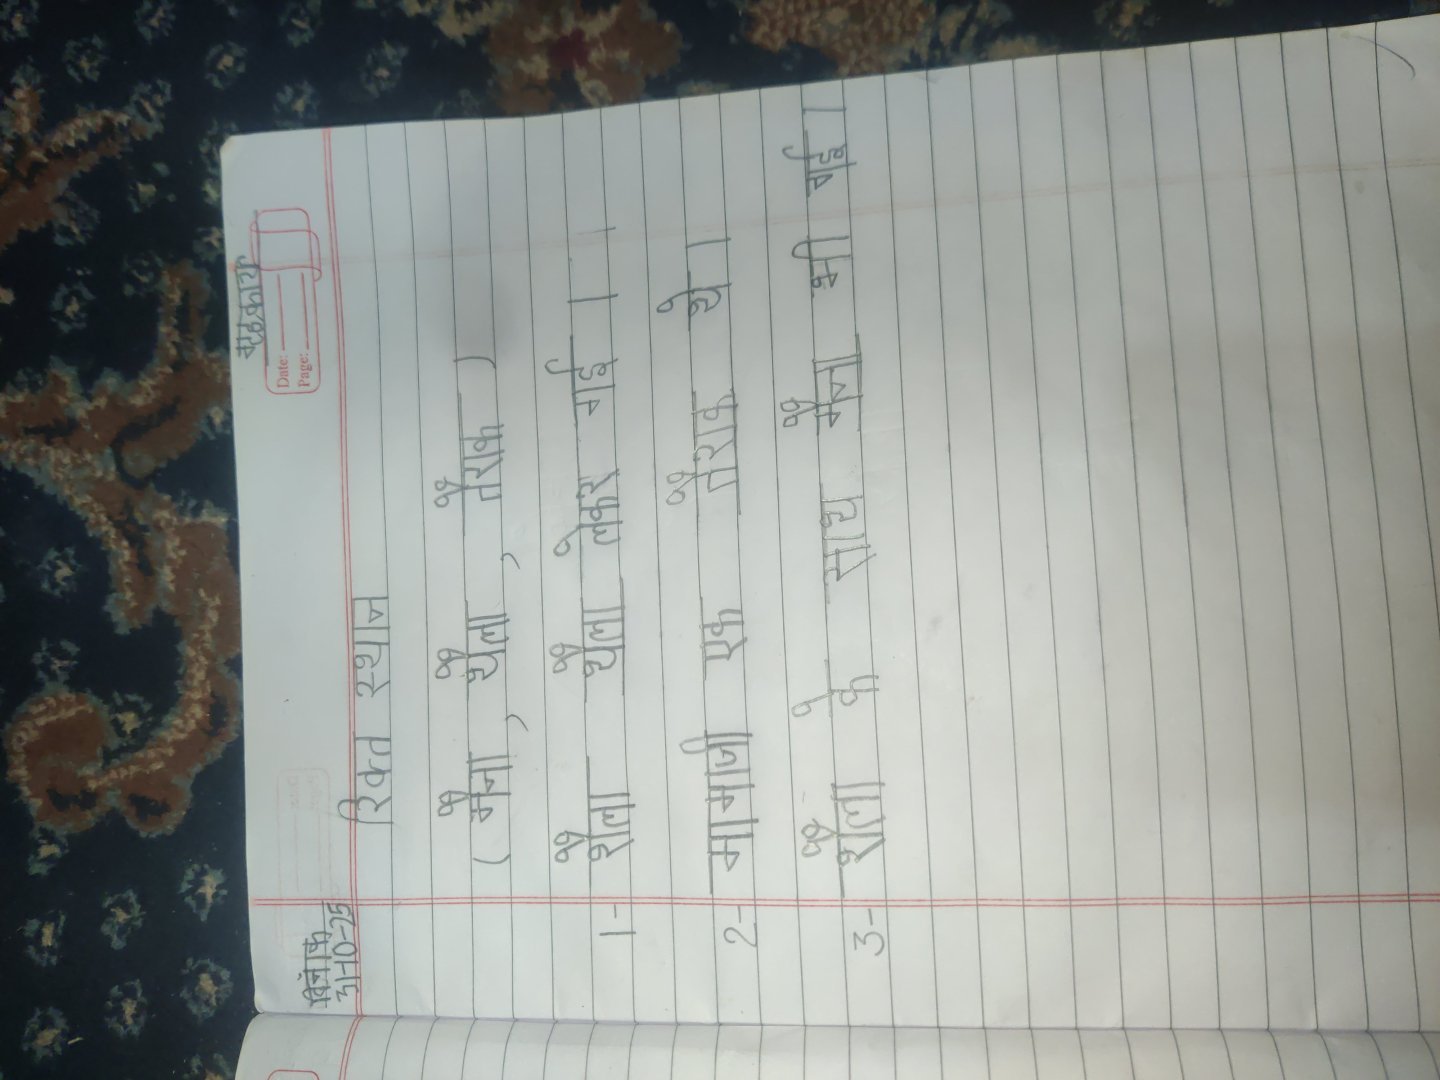 गृहकार्य
Date:
Page:
दिनांक
31-10-25
रिक्त स्थान
( मैना , थैला , तैराक )
1- शैला थैला लेकर गई ।
2- मामाजी एक तैराक थे ।
3- शैला के साथ मैना भी गई ।